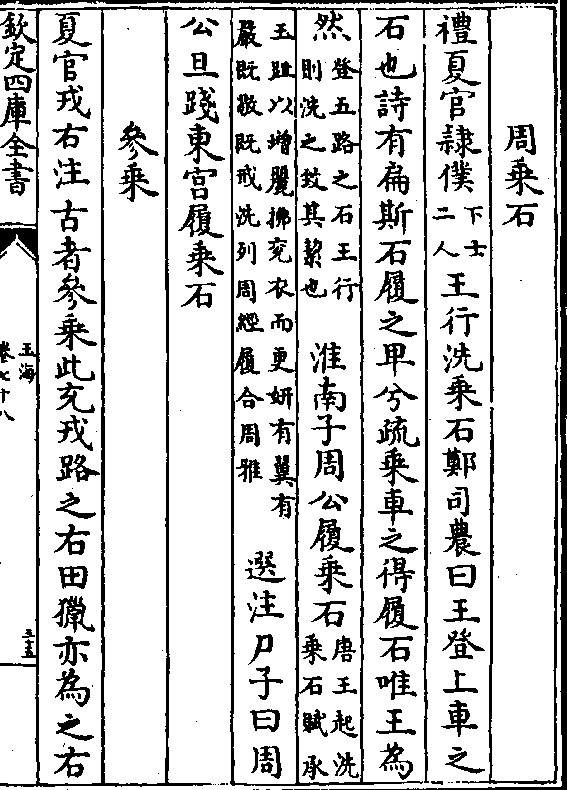 周乘石
禮夏官隷僕下士二人王行洗乘石鄭司農曰王登上車之
石也詩有扁斯石履之卑兮疏乘車之得履石唯王為
然登五路之石王行則洗之致其絜也淮南子周公履乘石唐王起洗乘石賦承
玉趾以增麗拂兖衣而更妍有翼有嚴既敬既戒洗列周經履合周雅選注尸子曰周
公旦踐東宮履乘石
參乘
夏官戎右注古者參乘此充戎路之右田獵亦為之右
欽定四庫全書
玉海
卷七十八